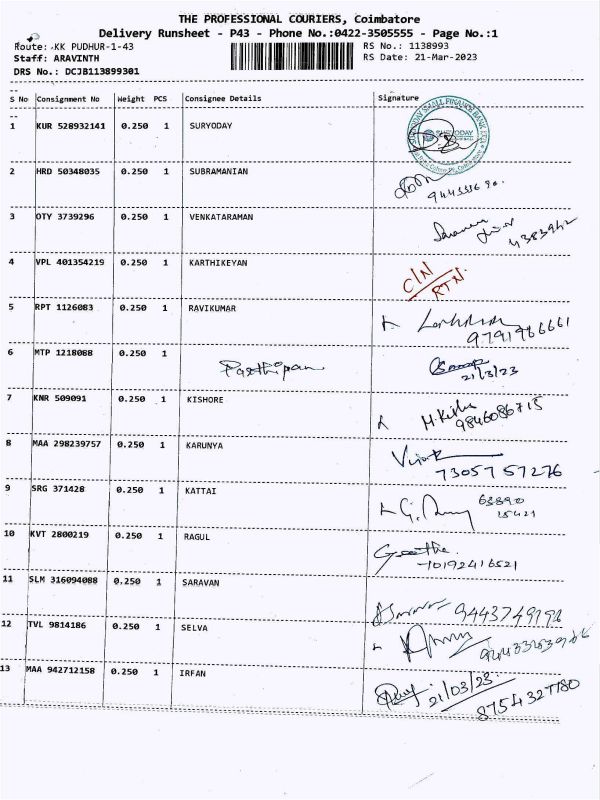 THE PROFESSIONAL COURIERS, Coimbatore
Delivery Runsheet - P43 - Phone No.:0422-3505555 - Page No.:1
Route: KK PUDHUR-1-43 RS No.: 1138993
Staff: ARAVINTH RS Date: 21-Mar-2023
DRS No.: DCJB113899301
S No Consignment No Weight PCS Consignee Details Signature
1 KUR 528932141 0.250 1 SURYODAY
SURYODAY
2 HRD 50348035 0.250 1 SUBRAMANIAN
3 OTY 3739296 0.250 1 VENKATARAMAN
4 VPL 401354219 0.250 1 KARTHIKEYAN C/N
RTN
5 RPT 1126083 0.250 1 RAVIKUMAR
9791966661
6 MTP 1218088 0.250 1 Parthipan
21/3/23
7 KNR 509091 0.250 1 KISHORE
9846086715
8 MAA 298239757 0.250 1 KARUNYA
7305757276
9 SRG 371428 0.250 1 KATTAI 63890
15421
10 KVT 2800219 0.250 1 RAGUL Geetha
10192416521
11 SLM 316094088 0.250 1 SARAVAN
9443749192
12 TVL 9814186 0.250 1 SELVA
13 MAA 942712158 0.250 1 IRFAN 21/03/23
8754327780